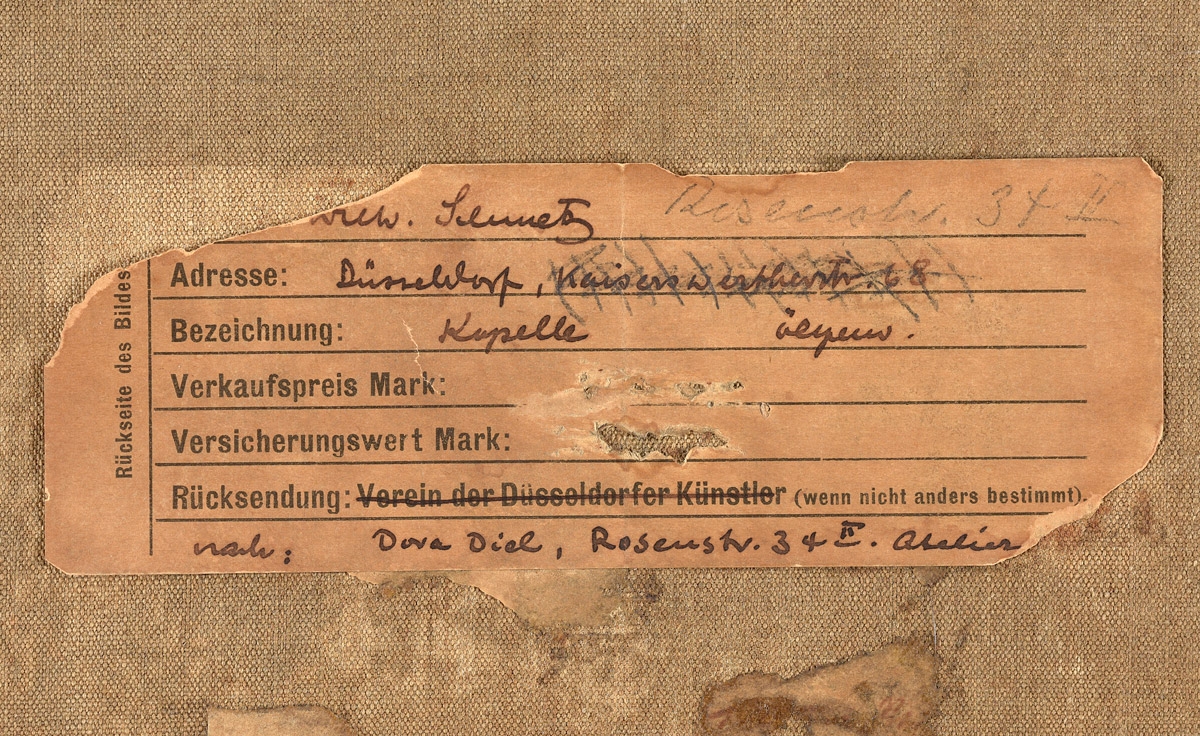 Wilh. Schmetz Rosenstr. 34 II
Adresse: Düsseldorf, Kaiserswertherstr. 68
Bezeichnung: Kapelle
Verkaufspreis Mark:
Versicherungswert Mark:
Rücksendung: Verein der Düsseldorfer Künstler (wenn nicht anders bestimmt).
nach: Dora Diel, Rosenstr. 34 II. Atelier
Rückseite des Bildes